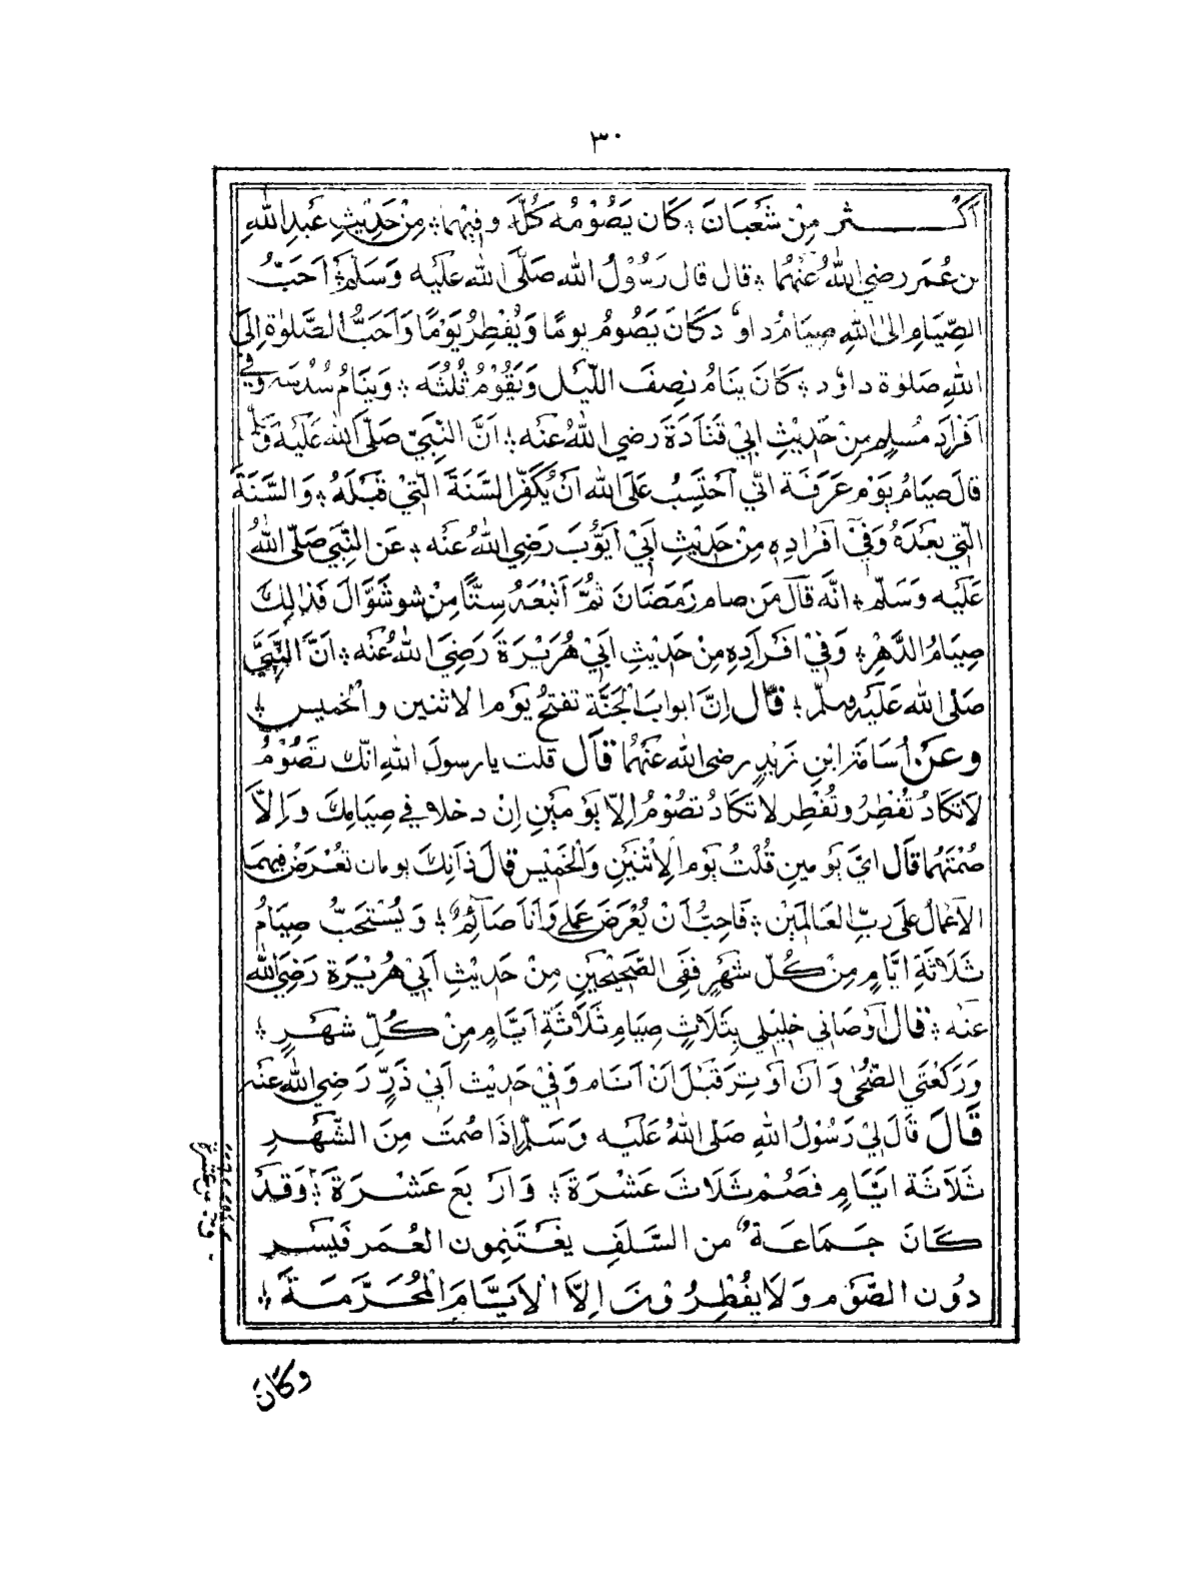 ٣٠
اَكْثَرَ مِنْ شَعْبَانَ ؞ كَان يَصُوْمُه كُلَّهٗ وفِيْهِمَا ؞ مِنْ حَدِيْثِ عَبدِ اللهِ
بن عُمَر رضي اللهُ عَنْهُمَا ؞ قال قال رَسُوْلُ الله صَلَّى اللهُ عَلَيه وَسَلَّمْ ؞ اَحَبُّ
الصِّيَامِ الىٰ اللهِ صِيَامُ داوٗدَ كَانَ يَصُومُ يومًا وَيُفْطِرُ يَوْمًا وَاَحَبُّ الصَّلوٰةِ اِلىَ
اللهِ صَلوٰة داوٗد ؞ كَانَ ينَامُ نِصفَ اللَّيْل وَيَقُوْمُ ثُلُثَه ؞ وَيَنَامُ سُدْسَه وَفي
اَفرادِ مُسْلِمٍ مِنْ حَدِيْثِ ابِيْ قَتَادَةَ رضي اللهُ عنه ؞ اَنَّ النَّبِيّ صَلّى الله عَلَيْه
قالَ صِيَامُ يَوْم عَرَفَة انّي اَحْتَسِبُ عَلَى الله اَنْ يُكَفِّرَ السَّنَةَ الَّتِيْ قَبْلَهُ ؞ وَالسَّنَةَ
الَّتِي بَعْدَهُ وَفِيْ اَفْرَادِهِ مِنْ حَدِيْثِ اَبِيْ اَيُّوْبَ رَضِيَ اللهُ عنْه ؞ عَن النَّبِيَ صَلّى اللهُ
عَلَيه وَسَلّم ؞ انَّه قَالَ مَن صام رَمَضَانَ ثمَّ اَتبْعَهُ سِتًّا مِنْ شو شَوَّالَ فَذٰلِكَ
صِيَامُ الدَّهْرِ ؞ وَفِيْ اَفْرَادِهِ مِنْ حَدِيْثِ اَبِيْ هُرَيْرَةَ رَضِيَ اللهُ عَنْه ؞ اَنَّ النَّبِيَّ
صَلى الله عَلَيْه وسلّم ؞ قَال اِنَّ ابوابَ الجَنَّةِ تفتحُ يَوْم الاثنين والْخميس ؞
وعَنْ اُسَامَةَ ابْنِ زَيْدٍ رضي الله عَنْهُمَا قَال قلت يا رسولَ اللهِ انّك تَصُوْمُ
لَا تَكَادُ تُفْطِرُ وتُفْطِر لا تكَادُ تصُوْمُ اِلّا يَوْمَيْنِ اِنْ دخلا في صِيَامِكَ وَاِلّاَ
صُمْتَهُمَا قَال ايَّ يَومينِ قُلْتُ يَوْم الِاثْنَيْنِ وَالْخَمِيْس قَالَ ذَانِكَ يومان تُعْرَضُ فِيهِمَا
الاَعْمَالُ عَلىَ ربِّ العَالَمِيْن ؞ فَاحِبُّ اَنْ يُعْرَضَ عَمَلِي وَاَنَا صَآئِمٌ ؞ وَيُسْتَحَبُّ صِيَامُ
ثَلَاثَةِ ايَّامٍ مِنْ كُلّ شَهْرٍ ففِي الصَّحِيْحَيْنِ مِنْ حَدِيْثِ اَبِيْ هُرَيْرَة رَضِيَ الله
عَنْه ؞ قَال اَوْصَاني خَلِيْلي بِثَلَاثٍ صِيَامِ ثَلَاثَةِ ايَّامٍ مِنْ كُلِّ شَهْرٍ ؞
وَرَكْعَتَي الضُّحٰى وَ اَنْ اَوْتِرَ قَبْلَ اَنْ اَنَام وَفِيْ حَدِيْث اَبيْ ذَرٍّ رَضِيَ اللهُ عَنْه
قَالَ قَالَ لِيْ رَسُوْلُ اللهِ صَلى اللهُ عَلَيه وَسَلَّمْ اِذَا صُمْتَ مِنَ الشَّهْرِ
ثَلَاثَة ايَّامٍ فَصُمْ ثَلَاثَ عَشْرَةَ ؞ وَاَرْبَعَ عَشْرَةَ ؞ وَقَدْ
كَانَ جَمَاعَة من السَّلَفِ يغْتَنِمون العُمَر فَيَسْر
دُوْن الصَّوْم وَلَا يُفْطِرُوْنَ اِلّاَ الْاَيَّامَ الْمُحَرَّمَةَ ؞
وكَانَ